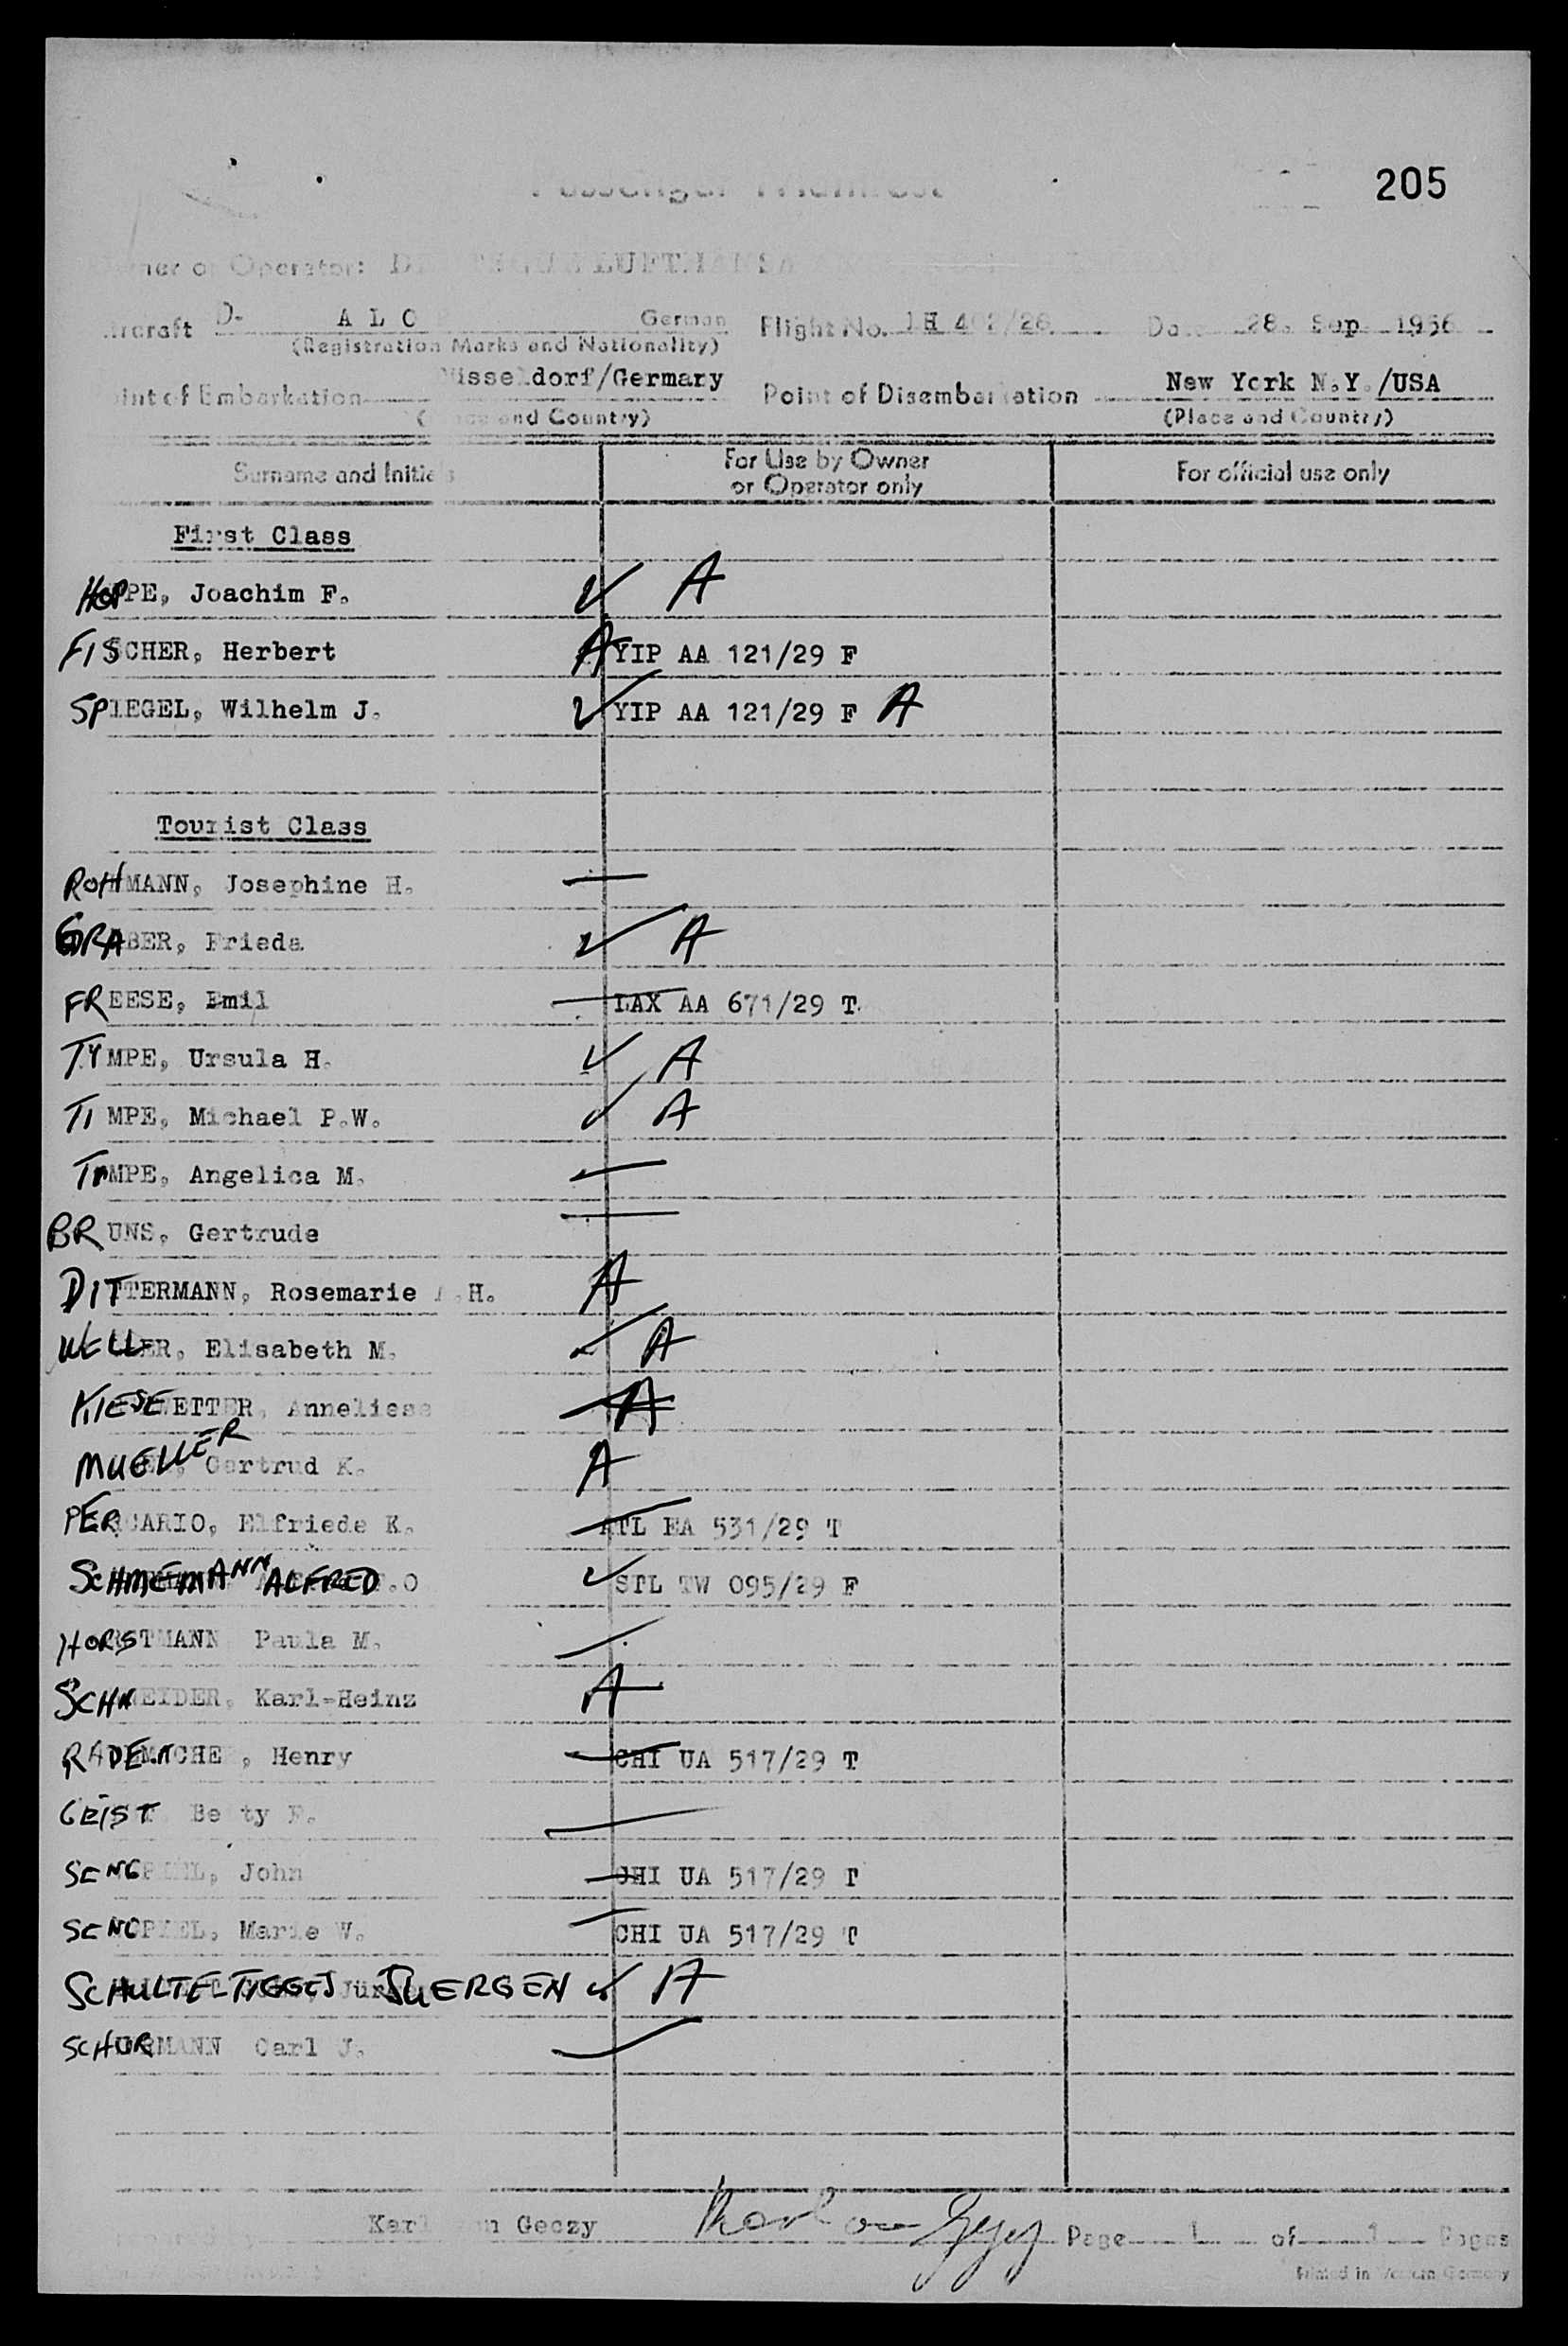 205
Operator: LUFTHANSA
D- A L O German Flight No. LH 402/28 28. Sep. 1956
(Registration Marks and Nationality)
Düsseldorf/Germany Point of Disembarkation New York N.Y./USA
and Country) (Place and Country)
Surname and Initials For Use by Owner or Operator only For official use only
First Class
HOPPE, Joachim F. A
FISCHER, Herbert A YIP AA 121/29 F
SPIEGEL, Wilhelm J. YIP AA 121/29 F A
Tourist Class
ROHMANN, Josephine H.
GRABER, Frieda A
FREESE, Emil LAX AA 671/29 T
TYMPE, Ursula H. A
TIMPE, Michael P.W. A
TIMPE, Angelica M.
BRUNS, Gertrude
DITTERMANN, Rosemarie H. A
WELLER, Elisabeth M. A
KIESEWETTER, Anneliese A
MUELLER, Gertrud K. A
PERICARIO, Elfriede K. ATL EA 531/29 T
SCHMIEMANN ALFRED F.O STL TW 095/29 F
HORSTMANN Paula M.
SCHNEIDER, Karl-Heinz A
RADEMACHE , Henry CHI UA 517/29 T
GEIST Betty
SENGPIEL, John CHI UA 517/29 T
SENGPIEL, Marie W. CHI UA 517/29 T
SCHULTE-TIGGES JUERGEN A
SCHURMANN Carl J.
Karl von Geczy Karl von Geczy Page 1 of 1 Pages
Printed in Western Germany